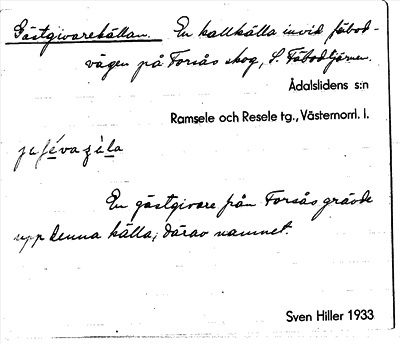 Gästgivarekällan. En kallkälla invid fäbod-
vägen på Forsås skog, S. Fäbodtjärnen.
Ådalslidens s:n
Ramsele och Resele tg., Västernorrl. l.
En gästgivare från Forsås grävde
upp denna källa; därav namnet.
Sven Hiller 1933